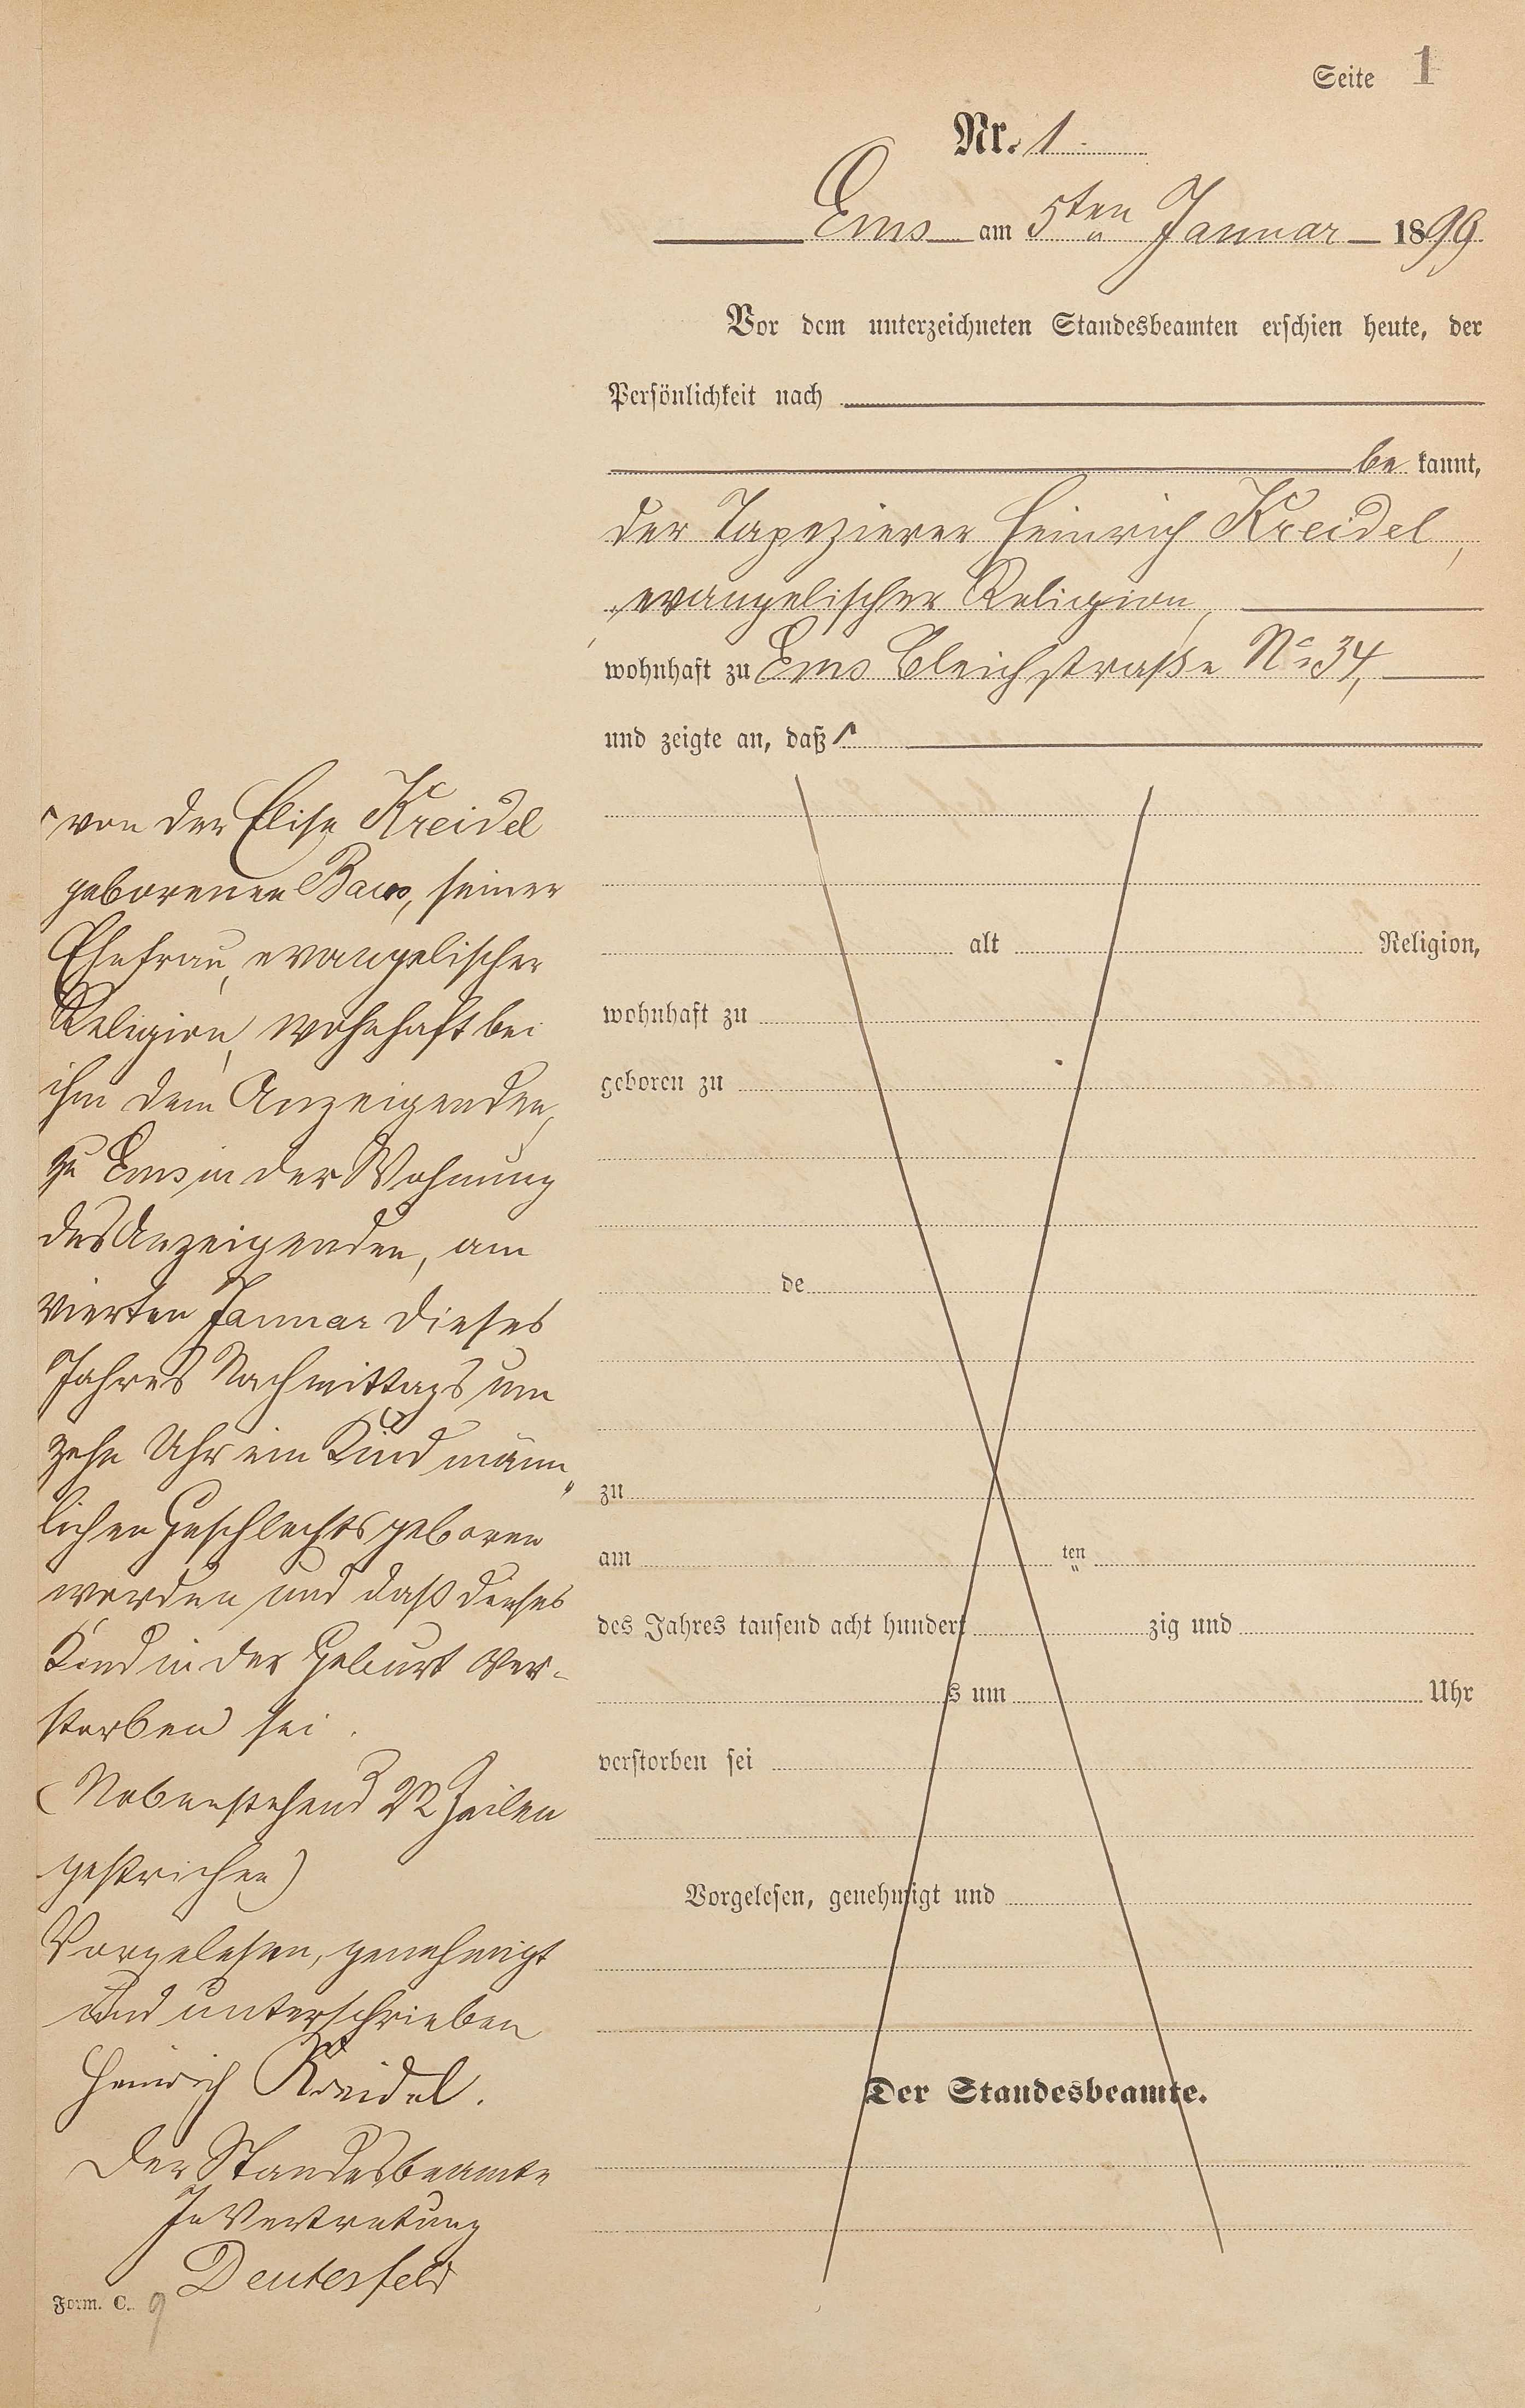 Seite 1
Nr. 1
Ems am 5ten Januar 1899
Vor dem unterzeichneten Standesbeamten erschien heute, der
Persönlichkeit nach
be kannt,
der Tapezierer Heinrich Kreidel,
evangelischer Religion,
wohnhaft zu Ems Bleichstraße No 34,
und zeigte an, daß
von der Elise Kreidel
geborenen Baus, seiner
Ehefrau, evangelischer
Religion, wohnhaft bei
ihm dem Anzeigenden,
zu Ems in der Wohnung
des Anzeigenden, am
vierten Januar dieses
Jahres Nachmittags um
zehn Uhr ein Kind männ„
lichen Geschlechts geboren
worden und daß dieses
Kind in der Geburt ver-
storben sei.
(Nebenstehend 22 Zeilen
gestrichen)
Vorgelesen, genehmigt
und unterschrieben
Heinrich Kreidel.
Der Standesbeamte
In Vertretung
Deutesfeld
alt Religion,
wohnhaft zu
geboren zu
de
zu
am ten
des Jahres tausend acht hundert zig und
s um Uhr
verstorben sei
Vorgelesen, genehmigt und
Der Standesbeamte.
Form. C. 9